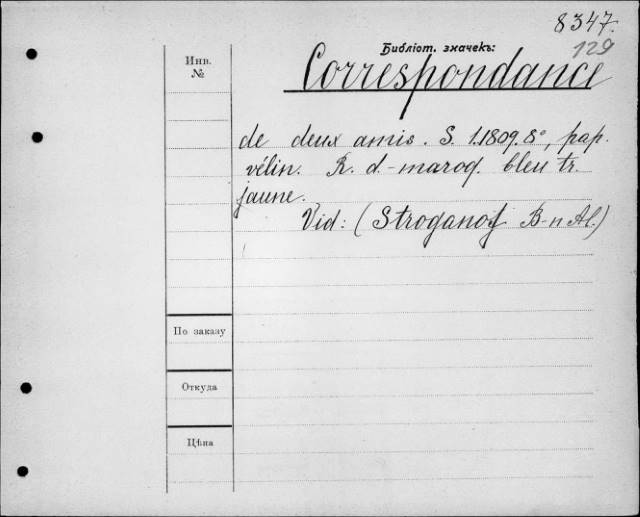 8347.
129
Библіот. значекъ:
Инв.
№
Correspondance
de deux amis. S. l. 1809. 8°, pap.
vélin. R. d.-maroq. bleu tr.
jaune.
Vid: (Stroganof B-n Al.)
По заказу
Откуда
Цѣна